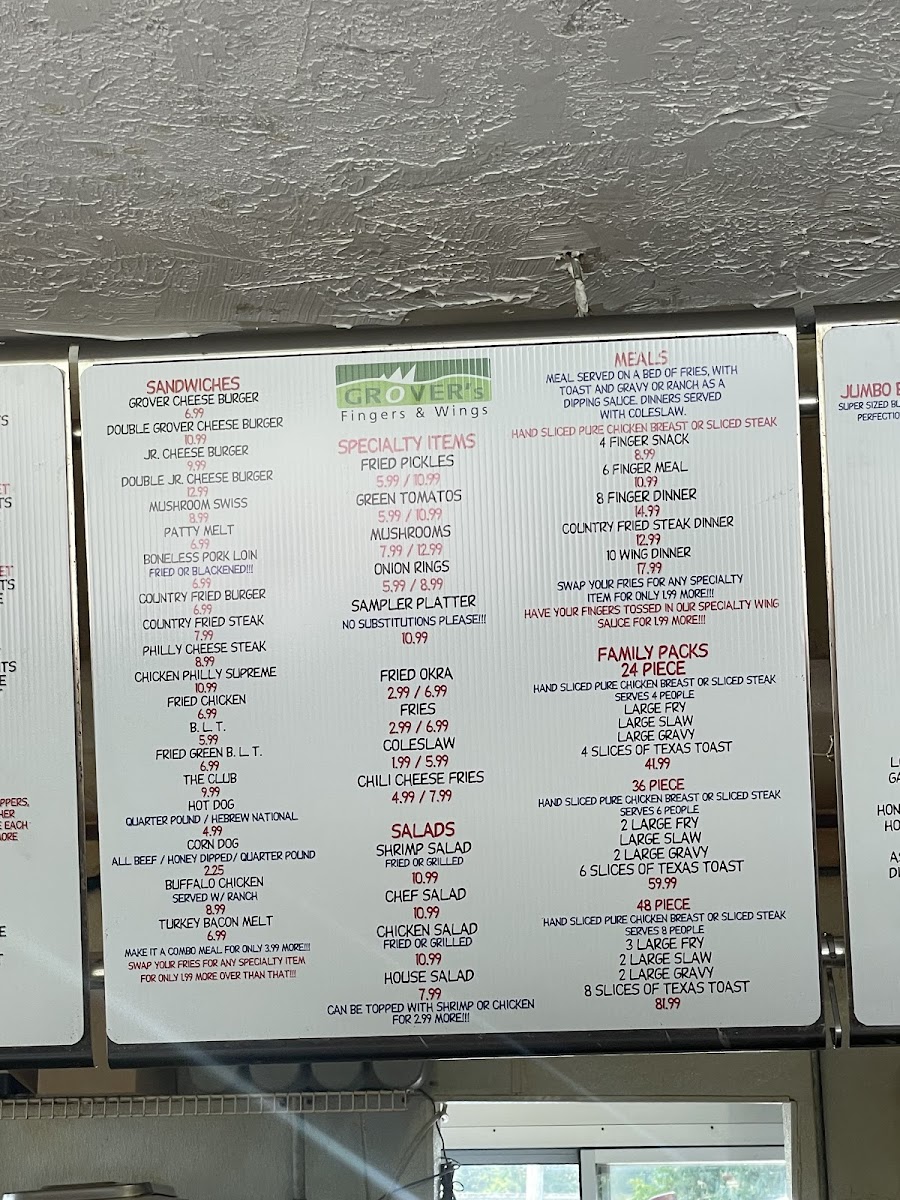 SANDWICHES
GROVER CHEESE BURGER
6.99
DOUBLE GROVER CHEESE BURGER
10.99
JR. CHEESE BURGER
9.99
DOUBLE JR. CHEESE BURGER
12.99
MUSHROOM SWISS
8.99
PATTY MELT
6.99
BONELESS PORK LOIN
FRIED OR BLACKENED!!!
6.99
COUNTRY FRIED BURGER
6.99
COUNTRY FRIED STEAK
7.99
PHILLY CHEESE STEAK
8.99
CHICKEN PHILLY SUPREME
10.99
FRIED CHICKEN
6.99
B. L. T.
5.99
FRIED GREEN B. L. T.
6.99
THE CLUB
9.99
HOT DOG
QUARTER POUND / HEBREW NATIONAL
4.99
CORN DOG
ALL BEEF / HONEY DIPPED / QUARTER POUND
2.25
BUFFALO CHICKEN
SERVED W/ RANCH
8.99
TURKEY BACON MELT
6.99
MAKE IT A COMBO MEAL FOR ONLY 3.99 MORE!!!
SWAP YOUR FRIES FOR ANY SPECIALTY ITEM
FOR ONLY 1.99 MORE OVER THAN THAT!!!
GROVER's
Fingers & Wings
SPECIALTY ITEMS
FRIED PICKLES
5.99 / 10.99
GREEN TOMATOS
5.99 / 10.99
MUSHROOMS
7.99 / 12.99
ONION RINGS
5.99 / 8.99
SAMPLER PLATTER
NO SUBSTITUTIONS PLEASE!!!
10.99
FRIED OKRA
2.99 / 6.99
FRIES
2.99 / 6.99
COLESLAW
1.99 / 5.99
CHILI CHEESE FRIES
4.99 / 7.99
SALADS
SHRIMP SALAD
FRIED OR GRILLED
10.99
CHEF SALAD
10.99
CHICKEN SALAD
FRIED OR GRILLED
10.99
HOUSE SALAD
7.99
CAN BE TOPPED WITH SHRIMP OR CHICKEN
FOR 2.99 MORE!!!
MEALS
MEAL SERVED ON A BED OF FRIES, WITH
TOAST AND GRAVY OR RANCH AS A
DIPPING SAUCE. DINNERS SERVED
WITH COLESLAW.
HAND SLICED PURE CHICKEN BREAST OR SLICED STEAK
4 FINGER SNACK
8.99
6 FINGER MEAL
10.99
8 FINGER DINNER
14.99
COUNTRY FRIED STEAK DINNER
12.99
10 WING DINNER
17.99
SWAP YOUR FRIES FOR ANY SPECIALTY
ITEM FOR ONLY 1.99 MORE!!!
HAVE YOUR FINGERS TOSSED IN OUR SPECIALTY WING
SAUCE FOR 1.99 MORE!!!
FAMILY PACKS
24 PIECE
HAND SLICED PURE CHICKEN BREAST OR SLICED STEAK
SERVES 4 PEOPLE
LARGE FRY
LARGE SLAW
LARGE GRAVY
4 SLICES OF TEXAS TOAST
41.99
36 PIECE
HAND SLICED PURE CHICKEN BREAST OR SLICED STEAK
SERVES 6 PEOPLE
2 LARGE FRY
LARGE SLAW
2 LARGE GRAVY
6 SLICES OF TEXAS TOAST
59.99
48 PIECE
HAND SLICED PURE CHICKEN BREAST OR SLICED STEAK
SERVES 8 PEOPLE
3 LARGE FRY
2 LARGE SLAW
2 LARGE GRAVY
8 SLICES OF TEXAS TOAST
81.99
JUMBO
SUPER SIZED